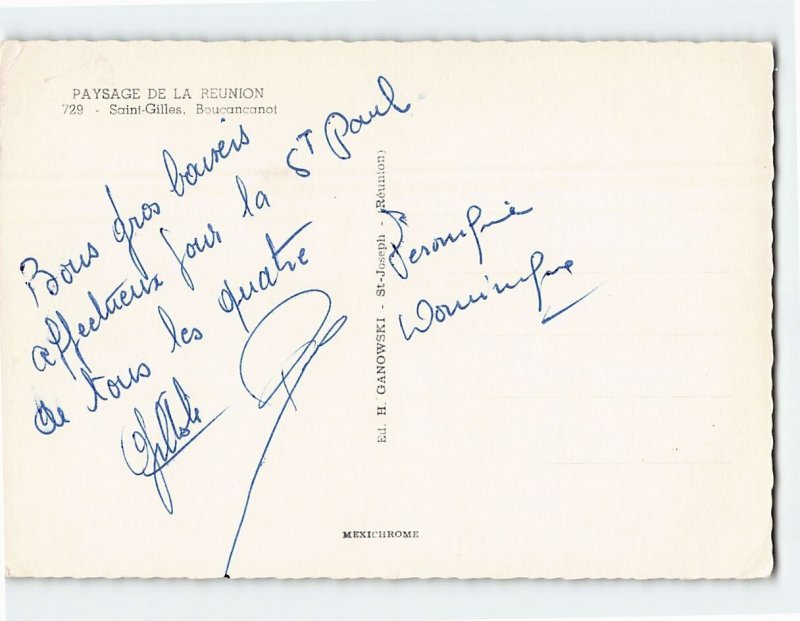 PAYSAGE DE LA REUNION
729 - Saint-Gilles. Boucancanot
Bons gros baisers
affectueux pour la ST Paul
de tous les quatre
Paul
Veronique
Dominique
Ed. H. GANOWSKI - St-Joseph - (Réunion)
MEXICHROME